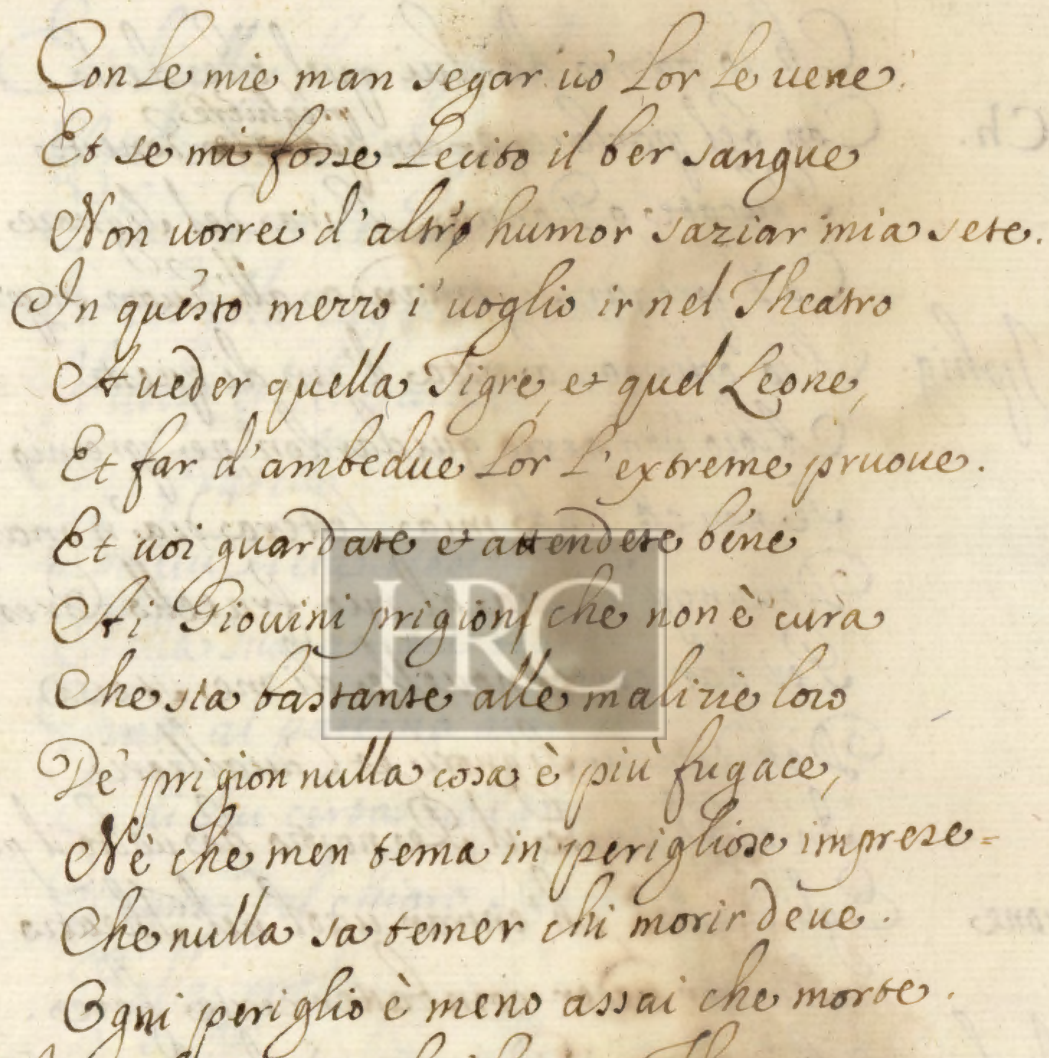 Con le mie man segar uò lor le uene.
Et se mi fosse lecito il ber sangue
Non uorrei d'altro humor saziar mia sete.
In questo mezzo i' uoglio ir nel Theatro
A ueder quella Tigre, et quel Leone,
Et far d'ambedue lor l'extreme pruoue.
Et uoi guardate et attendete bene
Ai Giouini prigion, che non è cura
Che sia bastante alle malizie loro
De' prigion nulla cosa è più fugace,
Nè che men tema in perigliose imprese
Che nulla sa temer chi morir deue.
Ogni periglio è meno assai che morte.
HRC